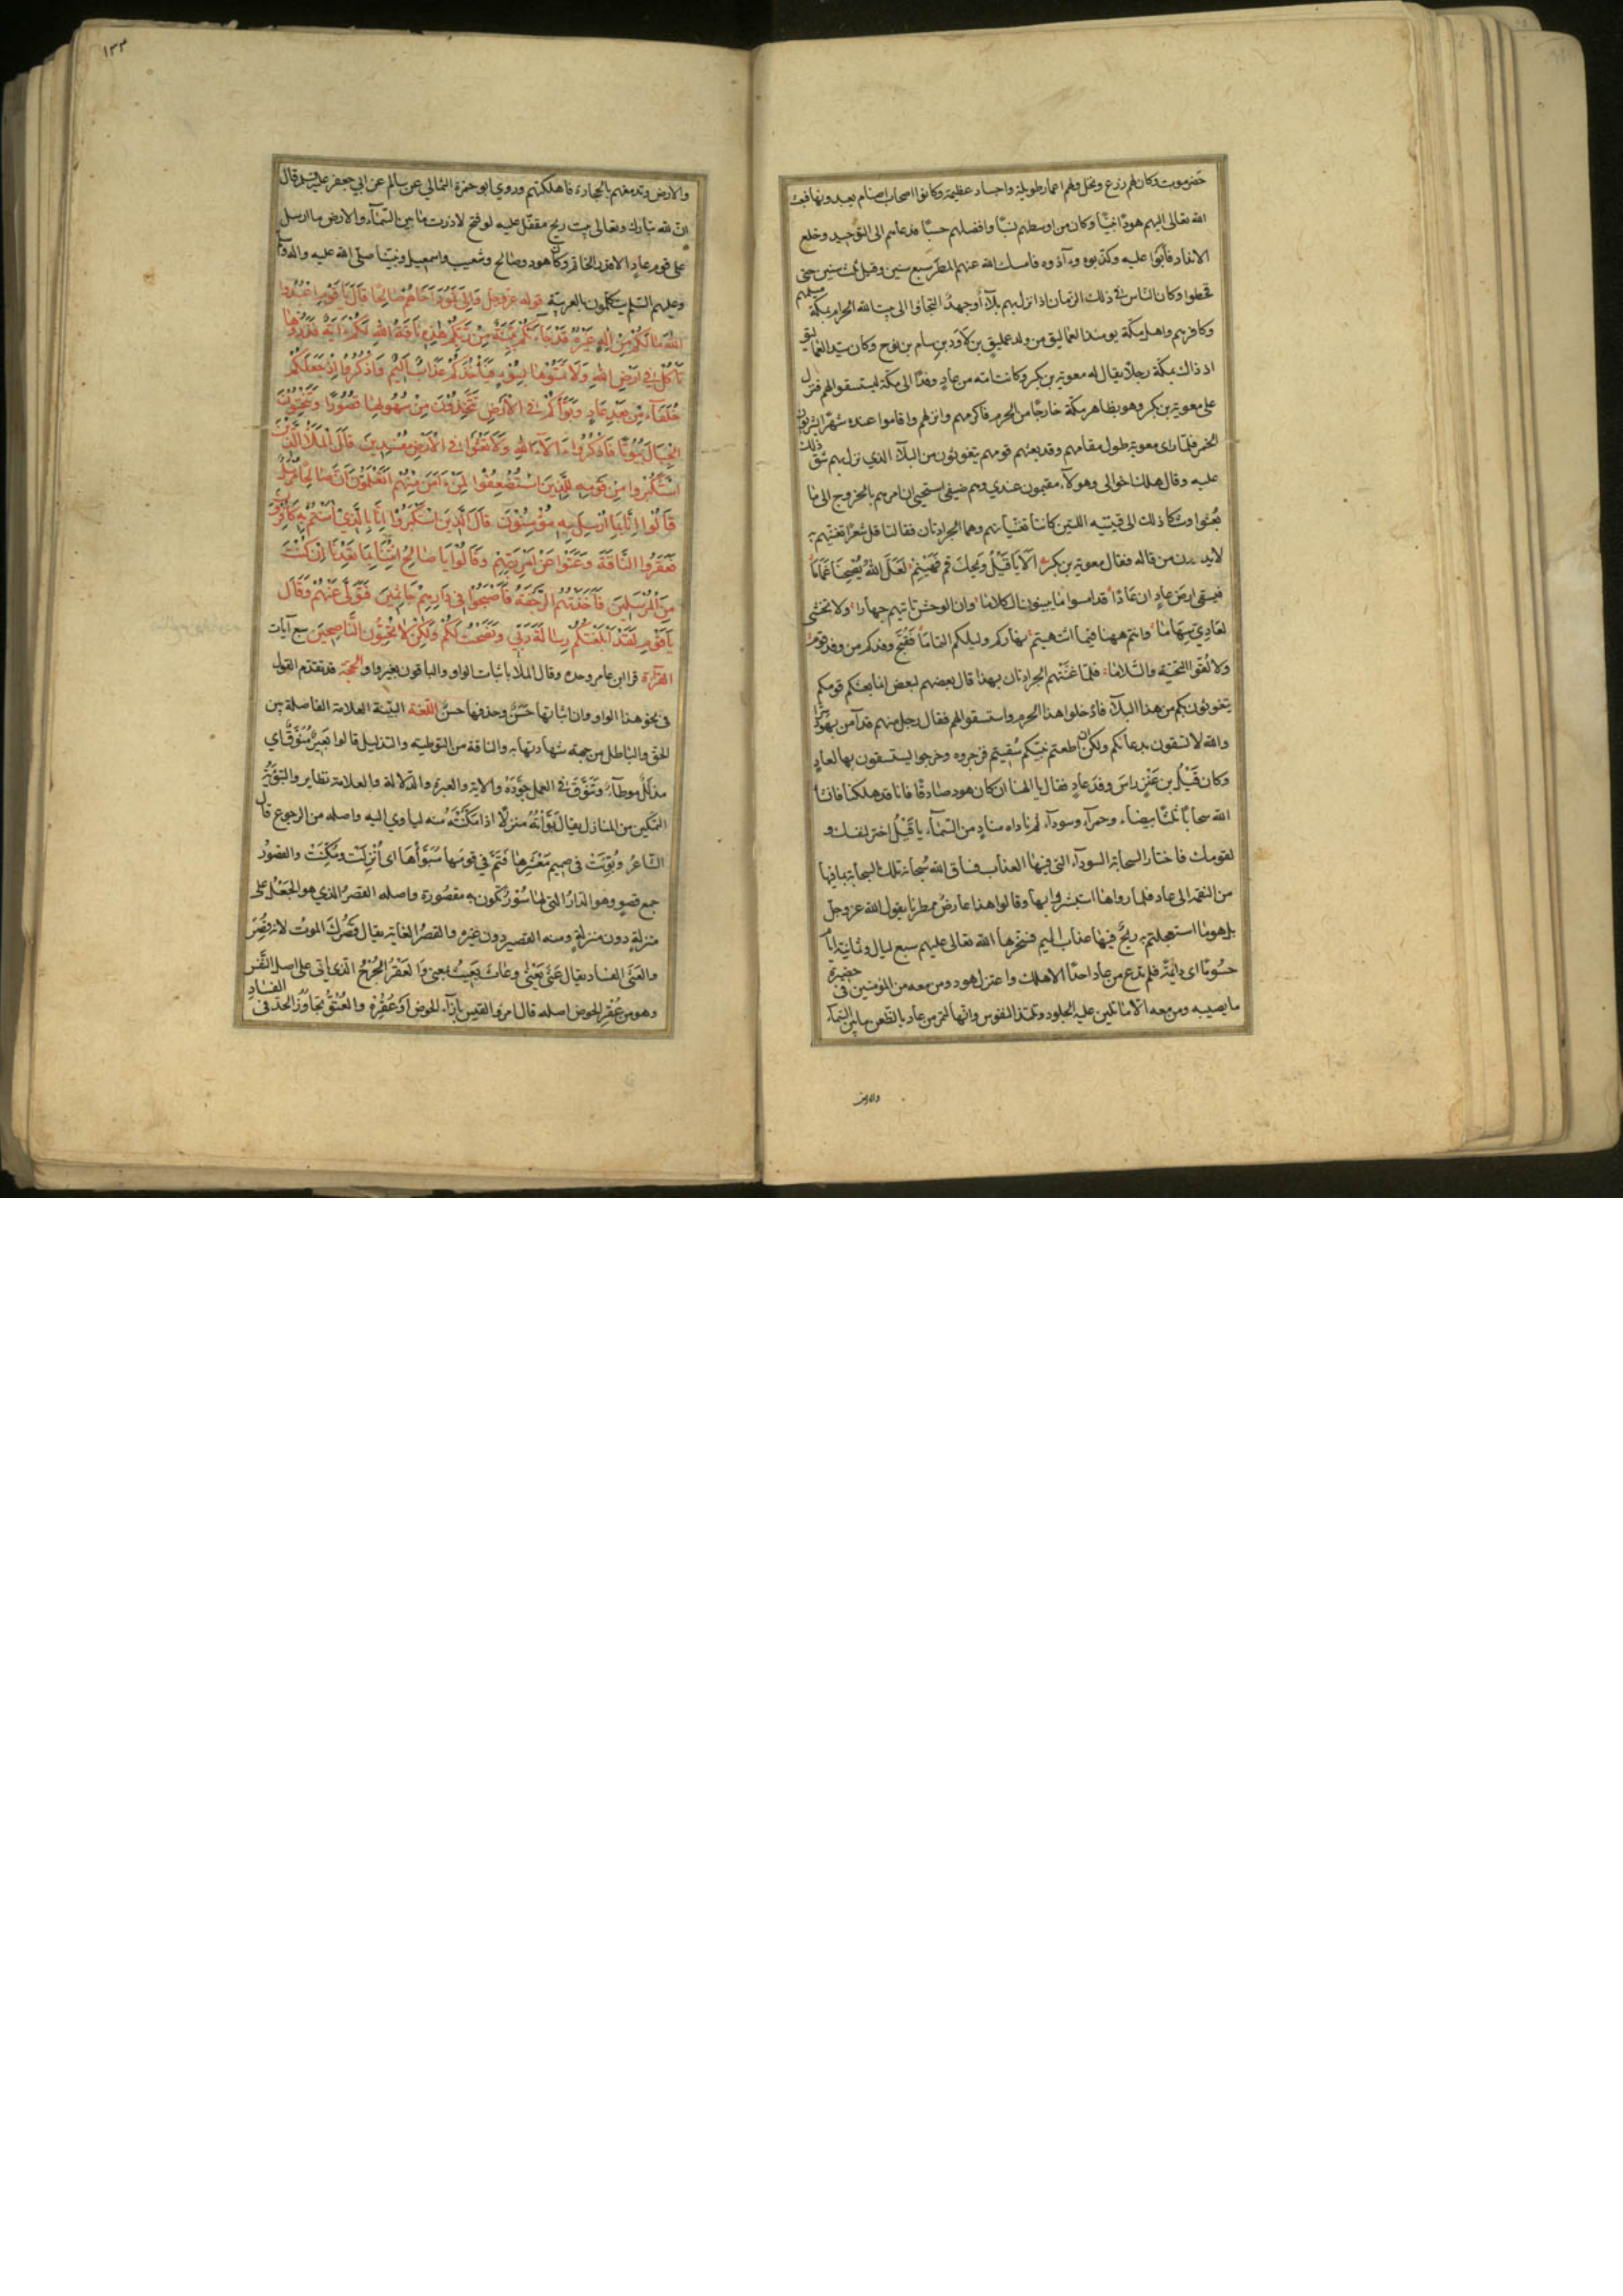 حضرموت وكان لهم زرع ونخل ولهم اعمار طويلة واجساد عظيمة وكانوا اصحاب اصنام يعبدونها فبعث
الله تعالى اليهم هودًا نبيًّا وكان من اوسطهم نسبًا وافضلهم حسبًا فدعاهم الى التوحيد وخلع
الانداد فأبَوا عليه وكذّبوه وءآذوه فامسك الله عنهم المطر سبع سنين وقيل ثلث سنين حتى
قحطوا وكان الناس في ذلك الزمان اذا نزل بهم بلآء أوجهدٌ التجاؤا الى بيت الله الحرام بمكة مسلمهم
وكافرهم واهل مكة يومئذ العماليق من ولد عمليق بن لاوَد بن سام بن نوح وكان سيد العماليق
اذ ذاك بمكة رجلاً يقال له معوية بن بكر وكانت امه من عادٍ فبعث عاد وفدًا الى مكة ليستسقوا لهم فنزل
على معوية بن بكر وهو بظاهر مكة خارجًا من الحرم فاكرمهم وانزلهم واقاموا عنده شهرًا يشربون
الخمر فلمّا رأى معوية طول مقامهم وقد بعثهم قومهم يتغوثون من البلآء الذي نزل بهم شق ذلك
عليه وقال هلك اخوالى وهولآء مقيمون عندي وهم ضيفى استحيى ان امرهم بالخروج الى ما
بُعثوا وشكا ذلك الى قينتيه اللتين كانتا تغنيانهم وهما الجرادتان فقالتا قل شعرًا نغنيهم به
لايدرون من قاله فقال معوية بن بكر الَا يَا قَيْلُ وَيحكَ قم فَهَيْنِمْ لَعَلَّ اللهُ يُصْبِحُنَا غَمَامَاً
فيسقى ارضَ عادٍ ان عَادًا قد امسوا ما يبينون الكلاما وان الوحش تاتيهم جهارا ولا تخشى
لعَادِيّ سِهَاما وانتم ههنا فيما اشتهيتم نهاركم وليلكم التماما فَقُبِّحَ وفدكم من وفد قومٍ
ولا لُقّوا التحيّة والسّلاما فلمّا غنّتهم الجرادتان بهذا قال بعضهم لبعض انما بعثكم قومكم
يتغوثون بكم من هذا البلآء فادخلوا هذا الحرم واستسقوا لهم فقال رجل منهم قد آمن بهود سرًّا
والله لا تسقون بدعآئكم ولكن ان اطعتم نبيّكم سُقيتم فزجروه وخرجوا يستسقون بها لعادٍ
وكان قَيْلُ بن عَنْزٍ راسَ وفد عادٍ فقال يا الهنا ان كان هود صادقًا فاسقنا فانا قد هلكنا فانشأ
الله سحابًا ثلثًا بيضآء وحمرآء وسودآء ثم ناداه منادٍ من السّمآء يا قَيْلُ اختر لنفسك و
لقومك فاختار السحابة السودآء التى فيها العذاب فساق الله سُبحانه تلك السحابة بما فيها
من النقمة الى عاد فلما رواها استبشروا بها وقالوا هذا عارضٌ ممطرنا يقول الله عز وجل
بل هو ما استعجلتم به ريحٌ فيها عذاب اليم فسخّرها الله تعالى عليهم سبع ليال وثمانية ايام
حسُومًا اى دائمةً فلم تدع من عاد احدًا الا هلك واعتزل هود ومن معه من المؤمنين في حضيرة
ما يصيبه ومن معه الّا ما تلين عليه الجلود وتلتذ النفوس وانها لتمر من عاد بالظعن ما بين السّمآء
والارض
١٣٣
والارض وتدمغهم بالحجارة فاهلكتهم وروى ابو حمزة الثمالي عن سالم عن ابي جعفر عليه السلم قال
انّ لله تبارك وتعالى بيت ريح مقفّل عليه لو فتح لاذرت ما بين السّمآء والارض ما ارسل
على قوم عادٍ الا قدر الخاتم وكان هود وصالح وشعيب واسمعيل ونبيّنا صلّى الله عليه واله و
وعليهم السّلم يتكلّمون بالعربية قوله عزّ وجلّ وَاِلىٰ ثَمُودَ اَخَاهُمْ صَالِحًا قَالَ يَا قَوْمِ اعْبُدُوا
اللهَ مَا لَكُمْ مِنْ اِلٰهٍ غَيْرُهُ قَدْ جَآءَتْكُمْ بَيِّنَةٌ مِنْ رَبِّكُمْ هٰذِهِ نَاقَةُ اللهِ لَكُمْ ءَايَةً فَذَرُوهَا
تَأكُلْ فِي اَرْضِ اللهِ وَلَا تَمَسُّوهَا بِسُوٓءٍ فَيَأخُذَكُمْ عَذَابٌ اَلِيمٌ وَاذْكُرُوٓا اِذْ جَعَلَكُمْ
خُلَفَآءَ مِنْ بَعْدِ عَادٍ وَبَوَّأَكُمْ فِي الْاَرْضِ تَتَّخِذُونَ مِنْ سُهُولِهَا قُصُورًا وَتَنْحِتُونَ
الْجِبَالَ بُيُوتًا فَاذْكُرُوٓا ءَالَآءَ اللهِ وَلَا تَعْثَوْا فِي الْاَرْضِ مُفْسِدِينَ قَالَ الْمَلَأُ الَّذِينَ
اسْتَكْبَرُوا مِنْ قَوْمِهِ لِلَّذِينَ اسْتُضْعِفُوا لِمَنْ ءَامَنَ مِنْهُمْ اَتَعْلَمُونَ اَنَّ صَالِحًا مُرْسَلٌ
قَالُوا اِنَّا بِمَا اُرْسِلَ بِهِ مُؤْمِنُونَ قَالَ الَّذِينَ اسْتَكْبَرُوا اِنَّا بِالَّذِي اٰمَنْتُمْ بِهِ كَافِرُونَ
فَعَقَرُوا النَّاقَةَ وَعَتَوْا عَنْ اَمْرِ رَبِّهِمْ وَقَالُوا يَا صَالِحُ ائْتِنَا بِمَا تَعِدُنَا اِنْ كُنْتَ
مِنَ الْمُرْسَلِينَ فَاَخَذَتْهُمُ الرَّجْفَةُ فَاَصْبَحُوا فِي دَارِهِمْ جَاثِمِينَ فَتَوَلَّى عَنْهُمْ وَقَالَ
يَا قَوْمِ لَقَدْ اَبْلَغْتُكُمْ رِسَالَةَ رَبِّي وَنَصَحْتُ لَكُمْ وَلٰكِنْ لَا تُحِبُّونَ النَّاصِحِينَ سبع آيات
القرآءة قرا ابن عامر وحده وقال الملا باثبات الواو والباقون بغير واو الحجّة قد تقدّم القول
فى نحو هذا الواو وان اثباتها حَسَنٌ وحذفها حسنٌ اللّغة البيّنة العلامة الفاصلة بين
الحق والباطل من جهة شهادتها به والناقة من التوطئة والتذليل قالوا بَعِيرٌ مُنَوَّقٌ اي
مذلّلٌ موطّأ وتَنَوَّقَ في العمل جَوَّدَهُ والاية والعبرة والدّلالة والعلامة نظاير والتبوئة
التمكين من المنازل يقال بَوَّأتُهُ منزلاً اذا مكّنته منه لياوي اليه واصله من الرجوع قال
الشّاعرُ وبُوِّئت في صميم مَعْشَرِها فَتَمَّ في قومها مُبَوَّأُهَا اى اُنزلَت ومُكّنَتْ والقصورُ
جمع قصرٍ وهو الدّارُ التى لها سُوْرٌ تكون به مقصُورة واصله القصرُ الذي هو الجَعْلُ على
منزلةٍ دون منزلةٍ ومنه القصير دون غيره والقصرُ الغاية يقال قَصْرُكَ الموتُ لانه قصر
والعَثَىٰ الفساد يقال عَثى يَعْثى وعَاث يَعِيثُ بمعنى وَالعَقْرُ الجُرْحُ الذي ياتى على اصل النّفس
وهو من عُقْرِ الحوض اصله قال امرؤ القيس بازآء الحوض اَوْ عُقُرِهْ والعُتُوُّ تجاوُزُ الحدّ في الفساد